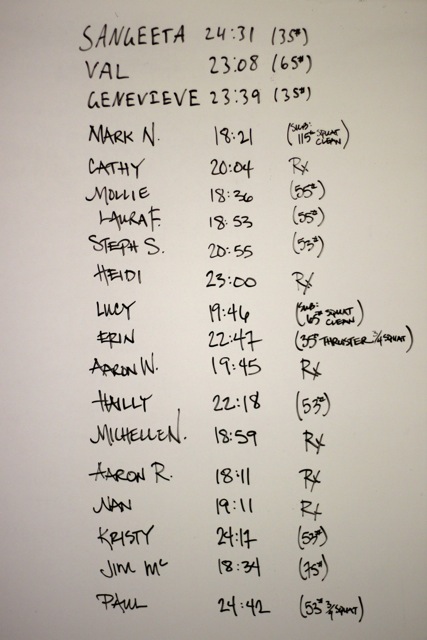 SANGEETA 24:31 (35#)
VAL 23:08 (65#)
GENEVIEVE 23:39 (35#)
MARK N. 18:21 (SUB: 115# SQUAT CLEAN)
CATHY 20:04 Rx
MOLLIE 18:36 (55#)
LAURA F. 18:53 (55#)
STEPH S. 20:55 (53#)
HEIDI 23:00 Rx
LUCY 19:46 (SUB: 65# SQUAT CLEAN)
ERIN 22:47 (35# THRUSTER 3/4 SQUAT)
AARON W. 19:45 Rx
HAILLY 22:18 (53#)
MICHELLE N. 18:59 Rx
AARON R. 18:11 Rx
NAN 19:11 Rx
KRISTY 24:17 (53#)
JIM Mc 18:34 (75#)
PAUL 24:42 (53# 3/4 SQUAT)